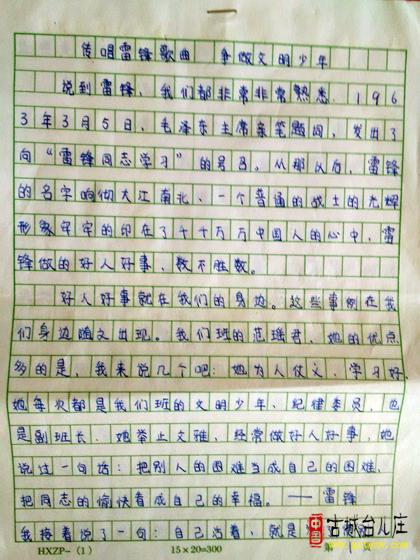 传唱雷锋歌曲 争做文明少年
说到雷锋，我们都非常非常熟悉。196
3年3月5日，毛泽东主席亲笔题词，发出了
向“雷锋同志学习”的号召。从那以后，雷锋
的名字响彻大江南北、一个普通的战士的光辉
形象牢牢的印在了千千万万中国人的心中，雷
锋做的好人好事，数不胜数。
好人好事就在我们的身边。这些事例在我
们身边随文出现。我们班的范瑶君，她的优点
多的是，我来说几个吧：她为人仗义，学习好
她每次都是我们班的文明少年、纪律委员，也
是副班长。她举止文雅，经常做好人好事，她
说过一句话：把别人的困难当成自己的困难，
把同志的愉快看成自己的幸福。——雷锋
我接着说了一句：自己活着，就是
HXZP-（1） 15×20=300 第 页
中国 古城台儿庄